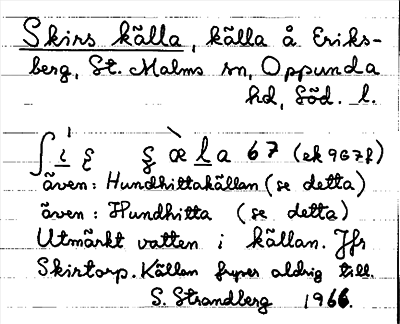 Skirs källa, källa å Eriks-
berg, St. Malms sn, Oppunda
hd, Söd. l.
la 67 (ek 967f)
även: Hundhittakällan (se detta)
även: Hundhitta (se detta)
Utmärkt vatten i källan. Jfr
Skirtorp. Källan fryser aldrig till.
S. Strandberg 1966.